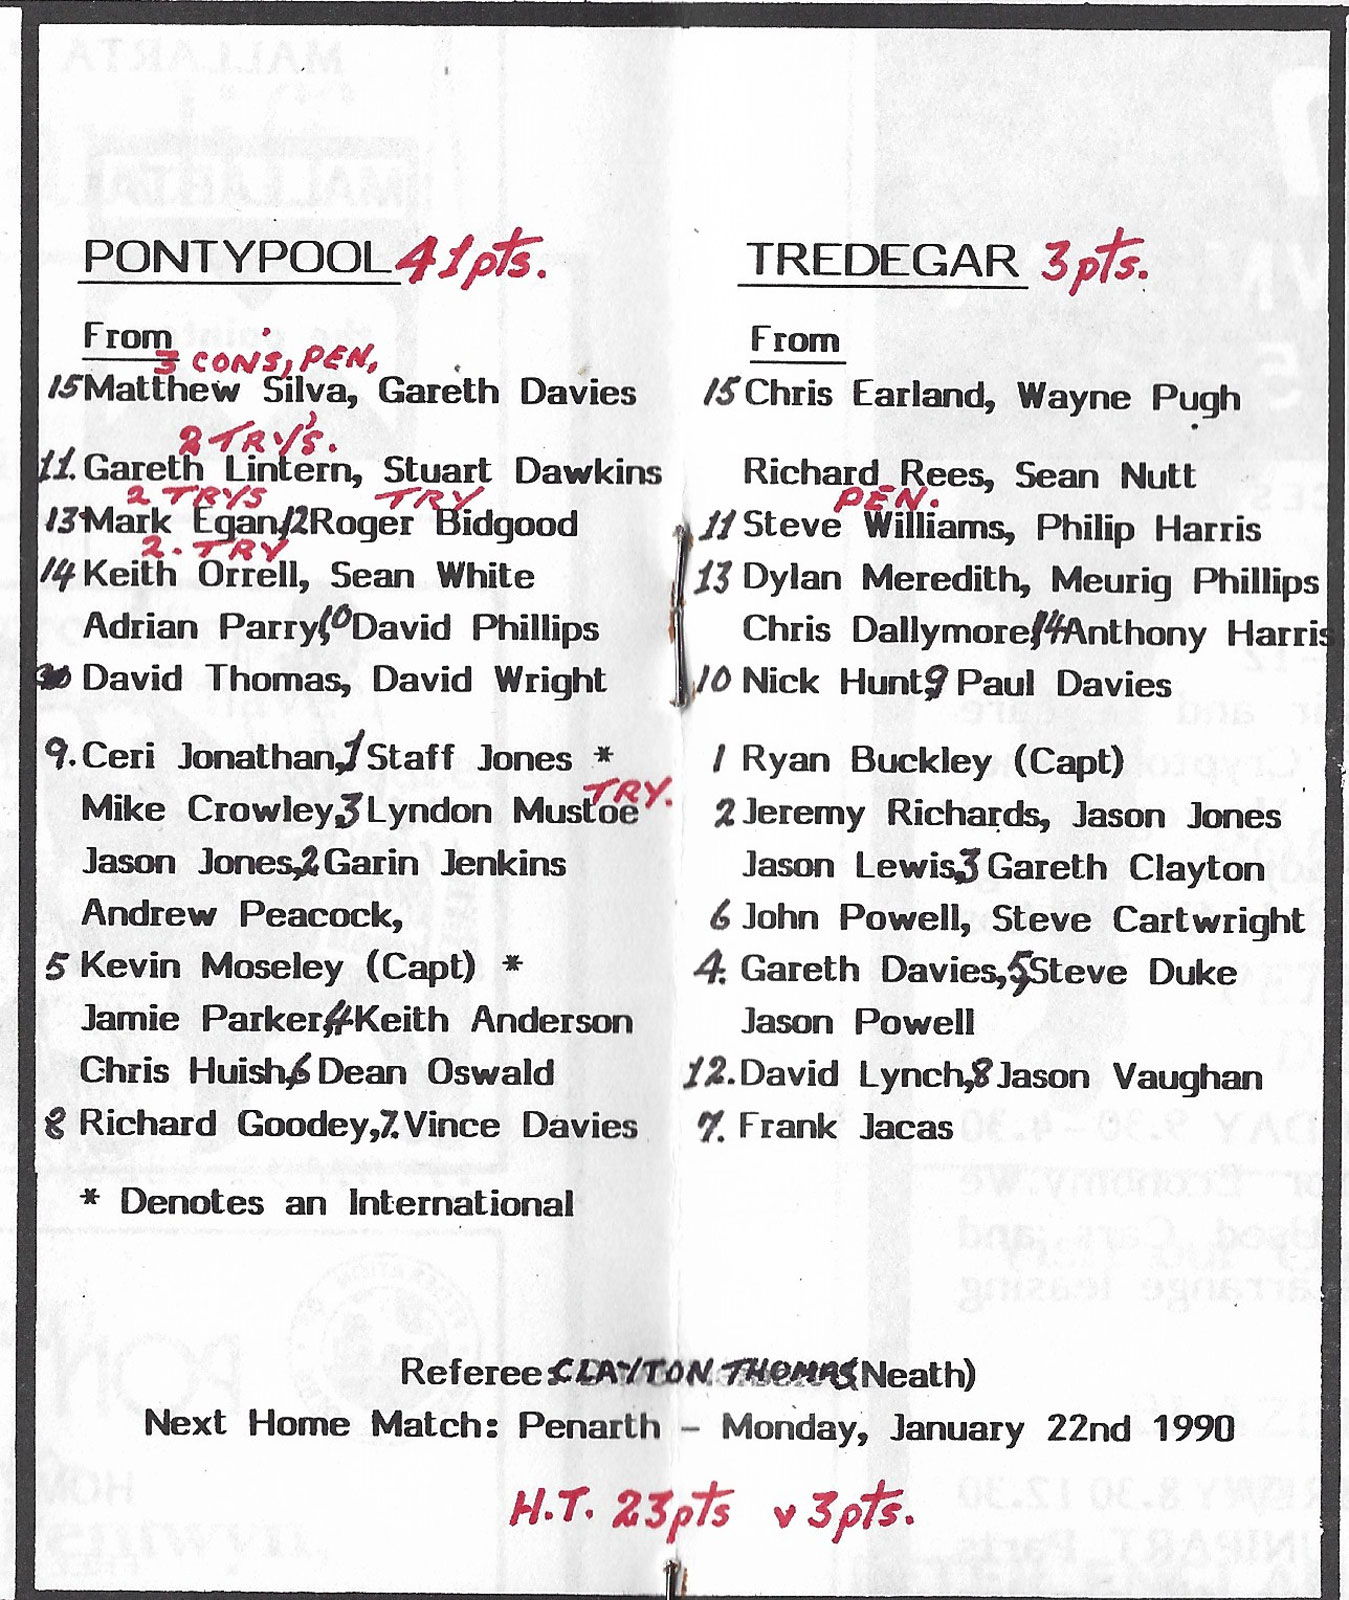 PONTYPOOL 41pts.
From
3 CONS, PEN,
15 Matthew Silva, Gareth Davies
2 TRY'S.
11. Gareth Lintern, Stuart Dawkins
2 TRYS TRY
13 Mark Egan, 12 Roger Bidgood
2. TRY
14 Keith Orrell, Sean White
Adrian Parry, 10 David Phillips
David Thomas, David Wright
9. Ceri Jonathan, 1 Staff Jones *
TRY.
Mike Crowley, 3 Lyndon Mustoe
Jason Jones, 2 Garin Jenkins
Andrew Peacock,
5 Kevin Moseley (Capt) *
Jamie Parker, 4 Keith Anderson
Chris Huish, 6 Dean Oswald
8 Richard Goodey, 7. Vince Davies
* Denotes an International
TREDEGAR 3pts.
From
15 Chris Earland, Wayne Pugh
Richard Rees, Sean Nutt
PEN.
11 Steve Williams, Philip Harris
13 Dylan Meredith, Meurig Phillips
Chris Dallymore, 14 Anthony Harris
10 Nick Hunt, 9 Paul Davies
1 Ryan Buckley (Capt)
2 Jeremy Richards, Jason Jones
Jason Lewis, 3 Gareth Clayton
6 John Powell, Steve Cartwright
4. Gareth Davies, 5 Steve Duke
Jason Powell
12. David Lynch, 8 Jason Vaughan
7. Frank Jacas
Referee: CLAYTON THOMAS (Neath)
Next Home Match: Penarth - Monday, January 22nd 1990
H.T. 23pts v 3pts.